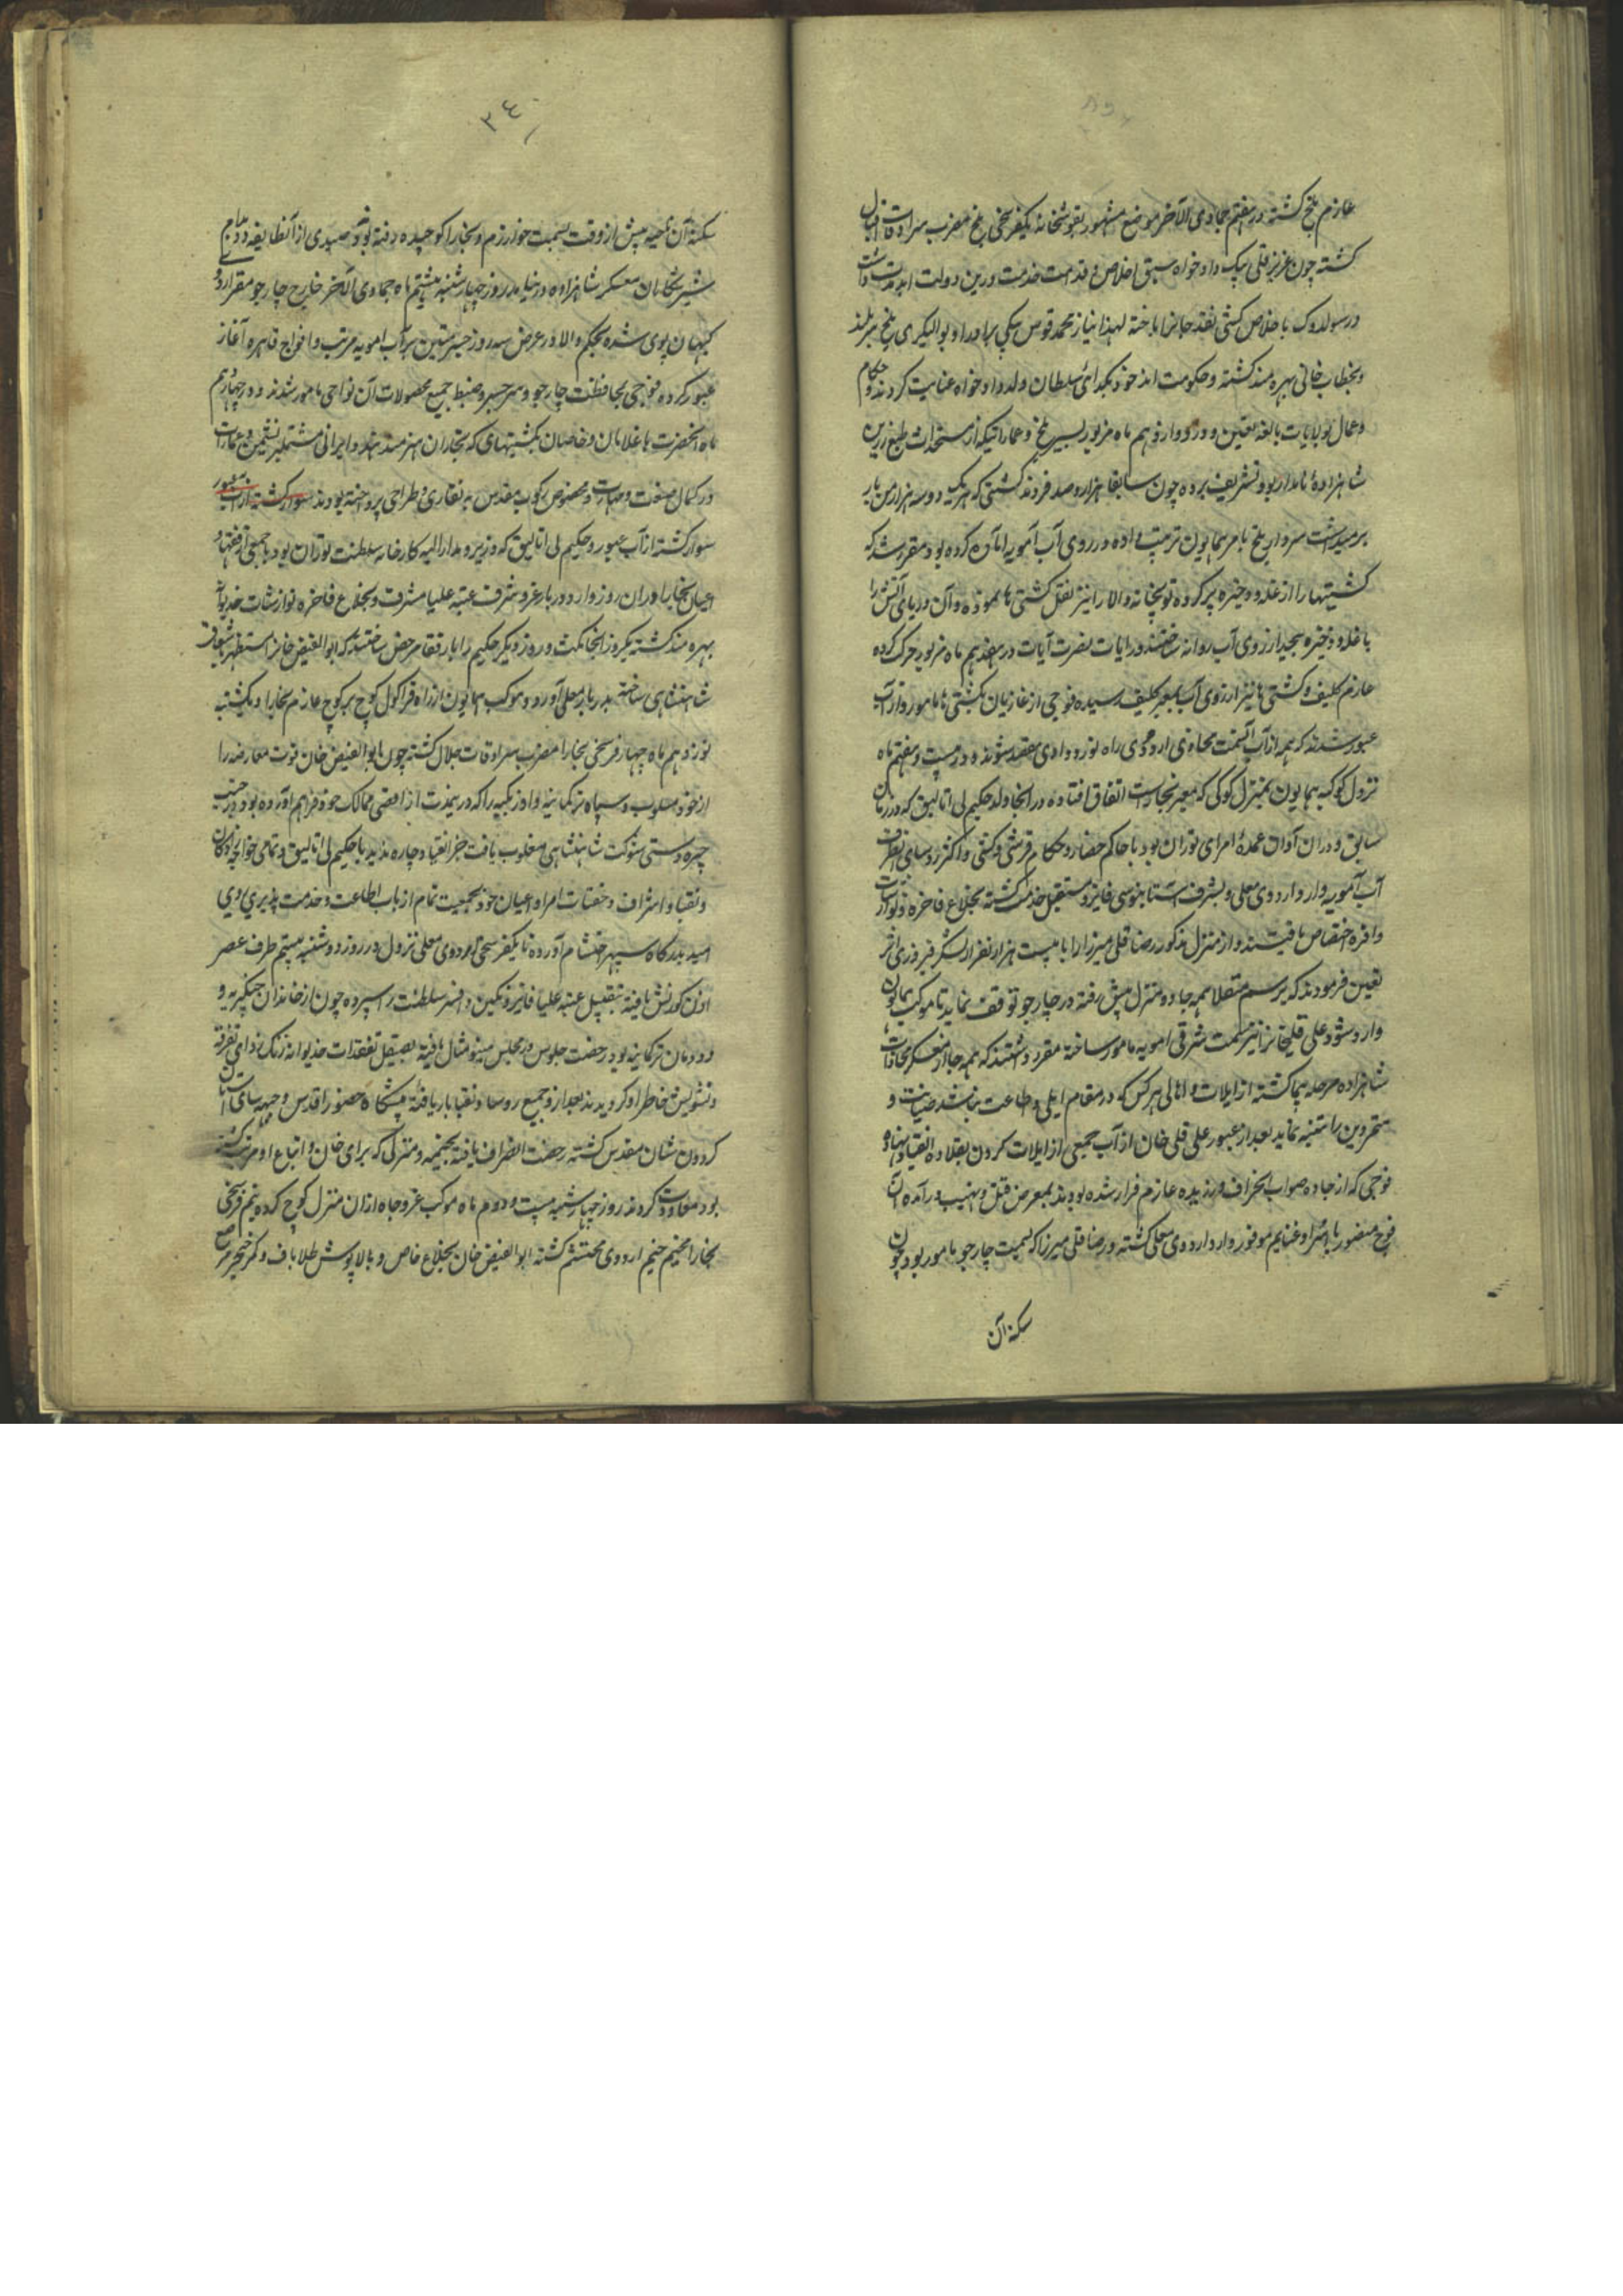 عازم بلخ کشته در هفتم جمادی الآخر موضع مشهور بقوشخانه یکفرسخی بلخ مضرب سرادقات اقبال
کشته چون عزیز قلی بیک دادخواه سبق اخلاص و قدمت خدمت درین دولت ابدمدت داشت
در سولدوک با خلاص کشی نقد جانرا باخته لهذا نیاز محمد قوس بیکی برادر او بوالیکری بلخ سربلند
و بخطاب خانی بهره مند کشته و حکومت اندخود بکدای سلطان ولد دادخواه عنایت کردند و حکام
و عمال بولایات بالغه تعیین و در دوازدهم ماه مزبور بسیر بلخ و عماراتیکه از مستحدثات طبع زرین
شاهزادهٔ نامدار بود تشریف برده چون سابقا هزار و صد فروند کشتی که هر یک دو سه هزار من بار
برمیداشت سردار بلخ بامر همایون ترتیب داده در روی آب آمویه اماده کرده بود مقرر شد که
کشتیها را از غله و ذخیره پر کرده توپخانه والا را نیز نقل کشتی ها نموده و آن دریای آتش را
با غله و ذخیره بیحد از روی آب روانه ساختند و رایات نصرت آیات در هفدهم ماه مزبور حرکت کرده
عازم کلیف و کشتی ها نیز از روی آب بمعبر کلیف رسیده فوجی از غازیان بکشتی ها مامور و از آب
عبور شدند که همه از آب آنسمت محاذی اردوی راه نورد وادی مقصد شوند و در بیست و هفتم ماه
نزول کوکبه همایون بمنزل کوکی که معبر بخاراست اتفاق افتاده در انجا ولد حکیم بی اتالیق که در زمان
سابق و دران آوان عمدهٔ امرای توران بود با حاکم حصار و حکام قرشی و کتی و اکثر روسای آنطرف
آب آمویه وارد اردوی معلی و بشرف آستانبوسی فایز و مستقبل خدمت کشته بخلاع فاخره و نوازشات
وافره اختصاص یافتند و از منزل مذکور رضا قلی میرزا را با بیست هزار نفر از لشکر فیروزی اثر
تعیین فرمودند که برسم منقلا همه جا ده منزل پیش رفته در چارجو توقف نماید تا موکب همایون
وارد شود و علی قلیخانرا نیز بسمت شرقی امویه مامور ساخته مقرر داشتند که همه جا از معسکر محاذات
شاهزاده مرحله پیما کشته از ایلات و اهالی هر کس که در مقام ایلی و اطاعت باشد صیانت و
متمردین را متنبه نماید بعد از عبور علی قلی خان از آب جمعی از ایلات کردن بقلاده انقیاد نهاده
فوجی که از جاده صواب انحراف ورزیده عازم فرار شده بودند بمعرض قتل و نهیب درآمده آن
فوج منصور با اسرا و غنایم موفور وارد اردوی معلی کشته و رضا قلی میرزا که بسمت چارجو مامور بود چون
سکنه آن
٣٤
سکنه آن ناحیه پیش از وقت بسمت خوارزم و بخارا کوچیده رفته بود صیدی از آنطایفه بدام
شیر شکاران معسکر شاهزاده در نیامد روز چهارشنبه هشتم ماه جمادی الآخر خارج چارجو مقر اردوی
کیهان پوی شده بحکم والا در عرض سه روز جسر متین بر آب امویه مرتب و افواج قاهره آغاز
عبور کرده فوجی بمحافظت چارجو و سر جسر و ضبط جمیع محصولات آن نواحی مامور شدند و در چهاردهم
ماه انحضرت با غلامان و خاصان بکشتیهای که نجاران هنرمند هند و ایرانی مشتمل بر نشیمن و عمارات
در کمال صنعت و مهارت مخصوص رکوب مقدس به نقاری و طراحی پرداخته بودند سوار کشته از آب عبور
سوار کشته از آب عبور و حکیم بی اتالیق که وزیر و مدار الیه کارخانه سلطنت توران بود با جمعی از فقها و
اعیان بخارا دران روز وارد دربار عز و شرف عتبه علیا مشرف و بخلاع فاخره نوازشات خدیوانه
بهره مند کشته یکروز انجا مکث و روز دیکر حکیم را با رفقا مرخص ساختند که ابو الفیض خانرا مستظهر بعواطف
شاهنشاهی ساخته بدربار معلی آورد و موکب همایون از راه قراکول کوچ بر کوچ عازم بخارا و یکشنبه
نوزدهم ماه چهار فرسخی بخارا مضرب سرادقات جلال کشته چون ابو الفیض خان قوت معارضه را
از خود مسلوب و سپاه ترکمانیه و اوزبکیه را که در ینمدت از اقصی ممالک خود فراهم آورده بود در جنب
چیره دستی شوکت شاهنشاهی مغلوب یافت جز انقیاد چاره ندید با حکیم بی اتالیق و تمامی خواجه زادکان
و نقبا و اشراف و قضات امرا و اعیان خود بجمعیت تمام از باب اطاعت و خدمت پذیری روی
امید بدرکاه سپهر احتشام آورده تا یکفرسخی اردوی معلی نزول در روز دوشنبه بیستم طرف عصر
اذن کورنش یافته بتقبیل عتبه علیا فایز و نکین و افسر سلطنت را سپرده چون از خاندان چنکیزیه و
دودمان ترکمانیه بود رخصت جلوس در مجلس مینو مثال یافته بصیقل تفقدات خدیوانه زنک زدای تفرقه
و تشویش خاطر او کردیدند بعد از و جمیع روسا و نقبا بار یافته پیشکاه حضور اقدس و جبهه سای آستان
کردون شان مقدس کشته رخصت انصراف یافته بخیمه و منزلی که برای خان و اتباع او مرتب کشته
بود معاودت کردند روز چهارشنبه بیست و دوم ماه موکب عز و جاه ازان منزل کوچ کرده نیم فرسخی
بخارا مخیم خیم اردوی محتشم کشته ابو الفیض خان بخلاع خاص و بالاپوش طلا باف و کمر خنجر مرصع